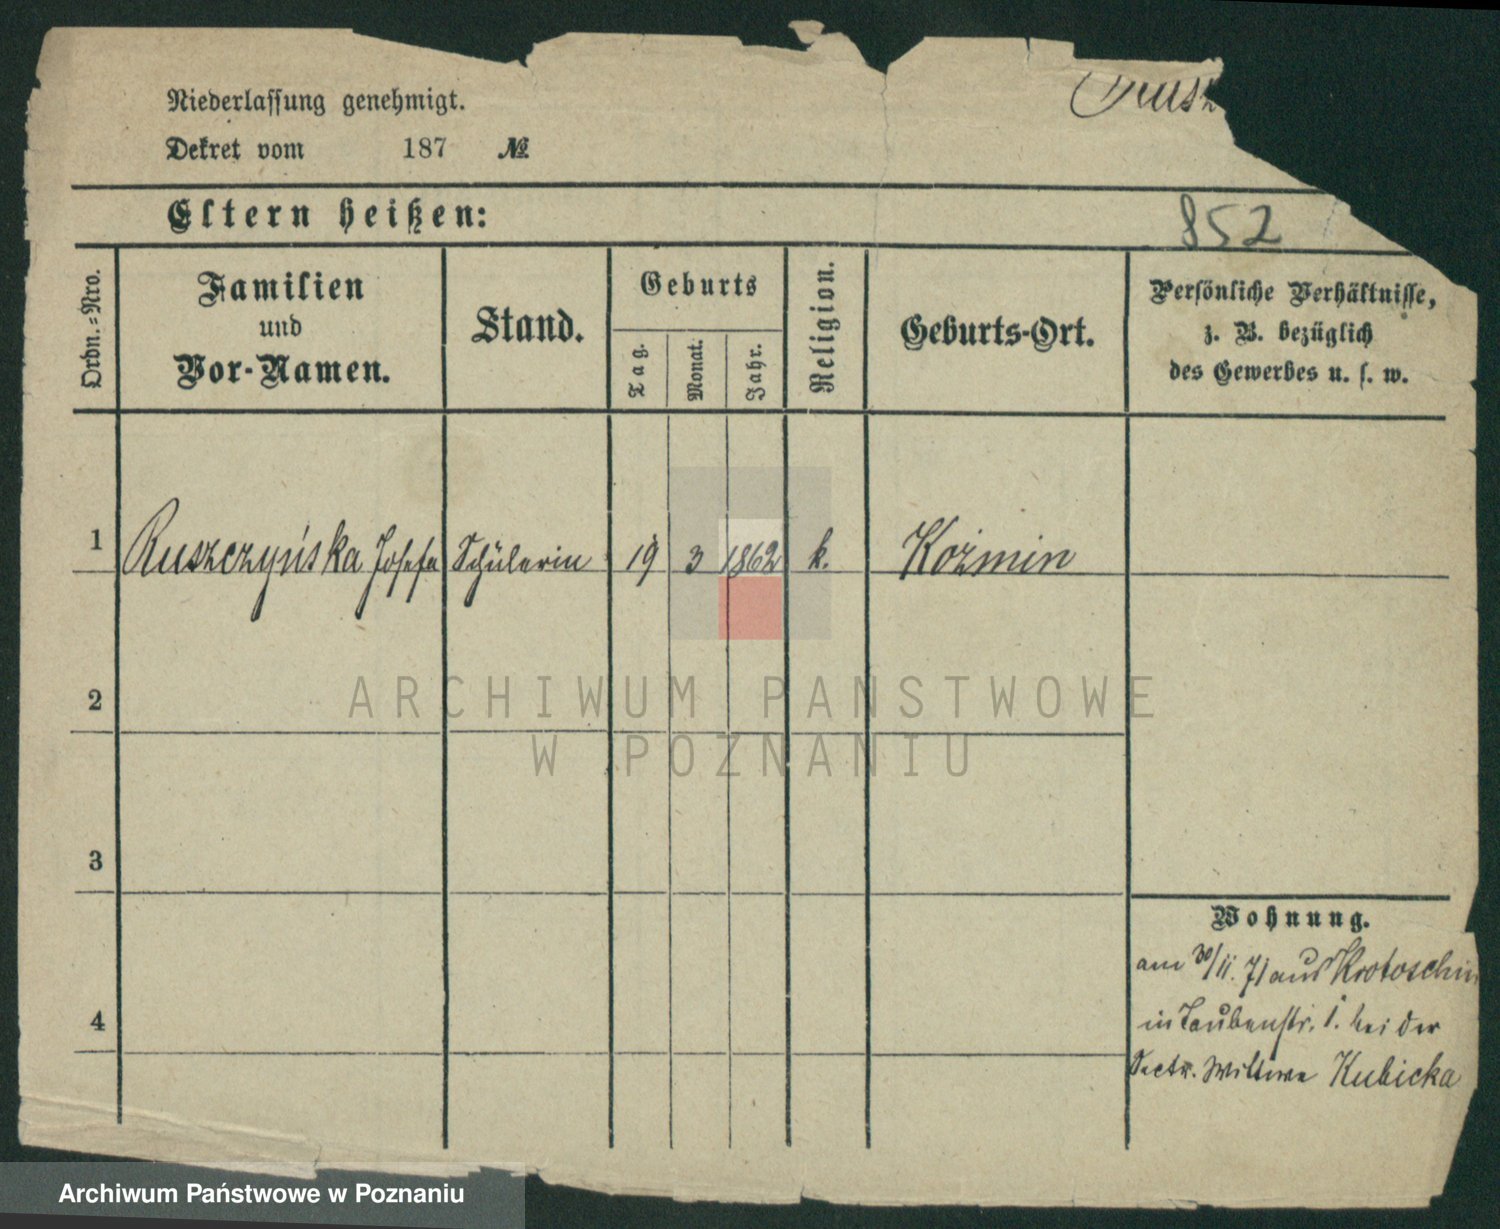 Niederlassung genehmigt.
Dekret vom 187 №
Eltern heißen:
852
Ordn.=Nro.
Familien
und
Vor-Namen.
Stand.
Geburts
Tag.
Monat.
Jahr.
Religion.
Geburts-Ort.
Persönliche Verhältnisse,
z. B. bezüglich
des Gewerbes u. s. w.
1 Ruszczyńska Josefa Schülerin 19 3 1862 k. Koźmin
2
3
4
Wohnung.
am 30/11. 71 aus Krotoschin
in Taubenstr. 1. bei der
Sectr. Wittwe Kubicka
ARCHIWUM PANSTWOWE
W POZNANIU
Archiwum Państwowe w Poznaniu